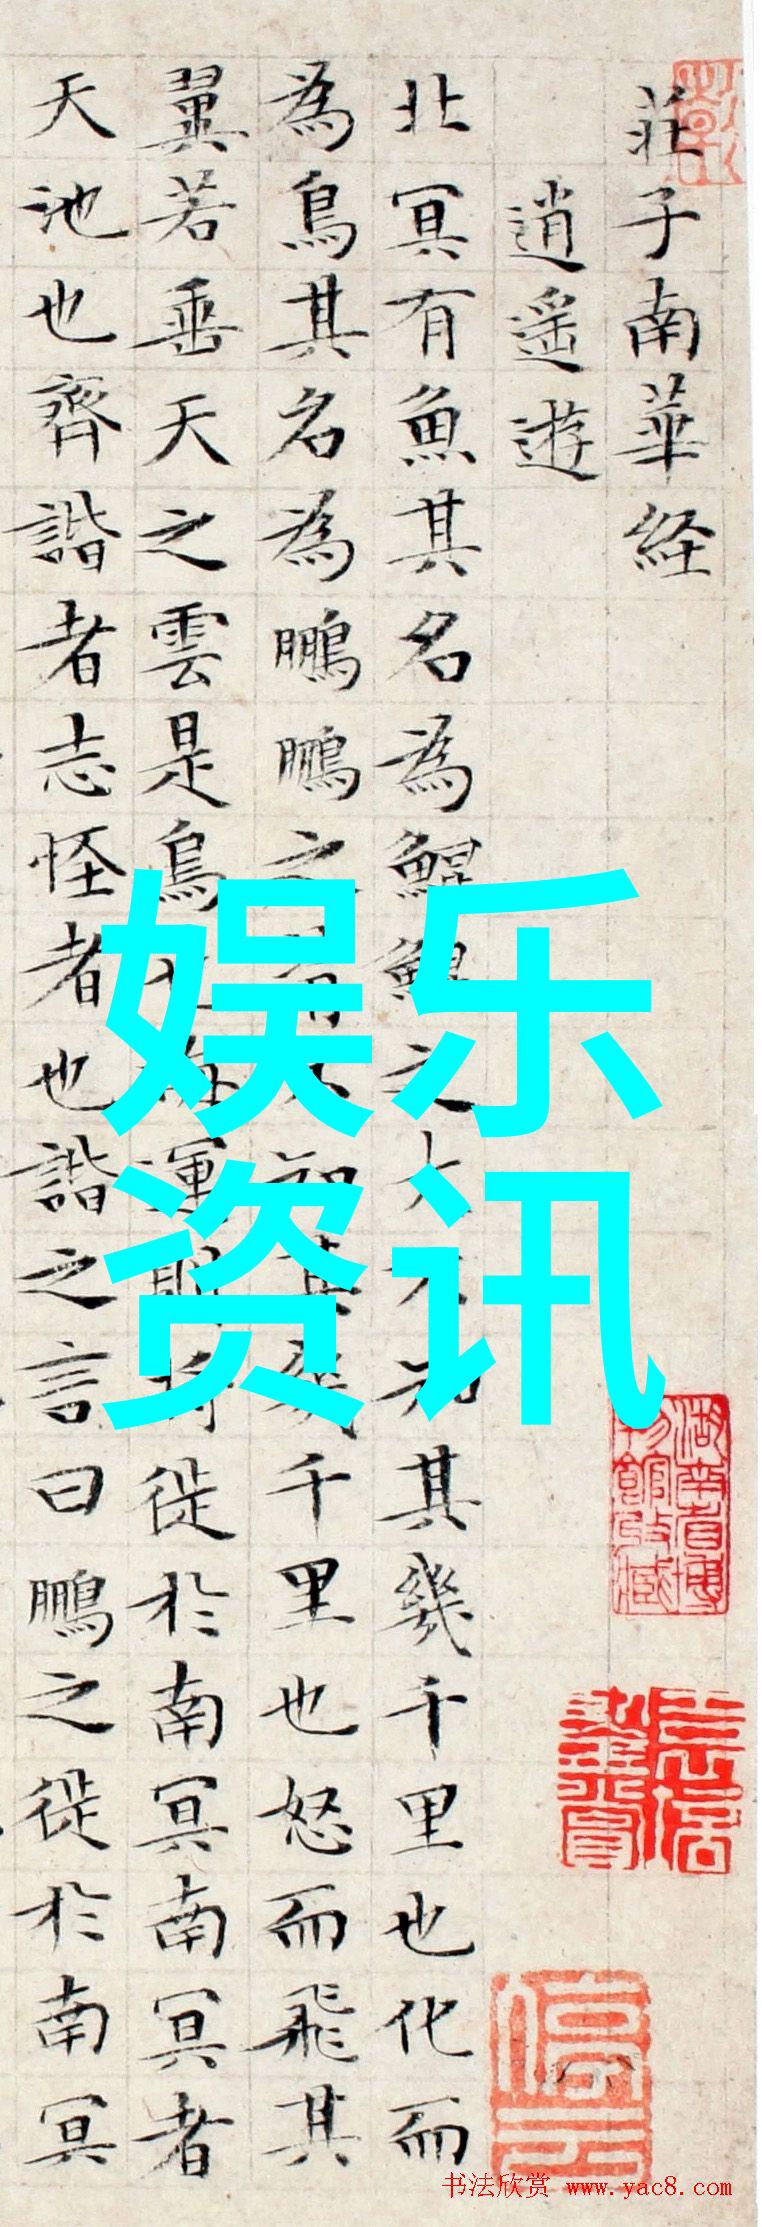 莊子南華経
逍遥遊
北冥有魚其名為鯤鯤之大不知其幾千里也化而
為鳥其名為鵬鵬之背不知其幾千里也怒而飛其
翼若垂天之雲是鳥也海運則將徙於南冥南冥者
天池也齊諧者志怪者也諧之言曰鵬之徙於南冥
娱乐
资讯
湖南省博
物館收藏
书法欣赏 www.yac8.com